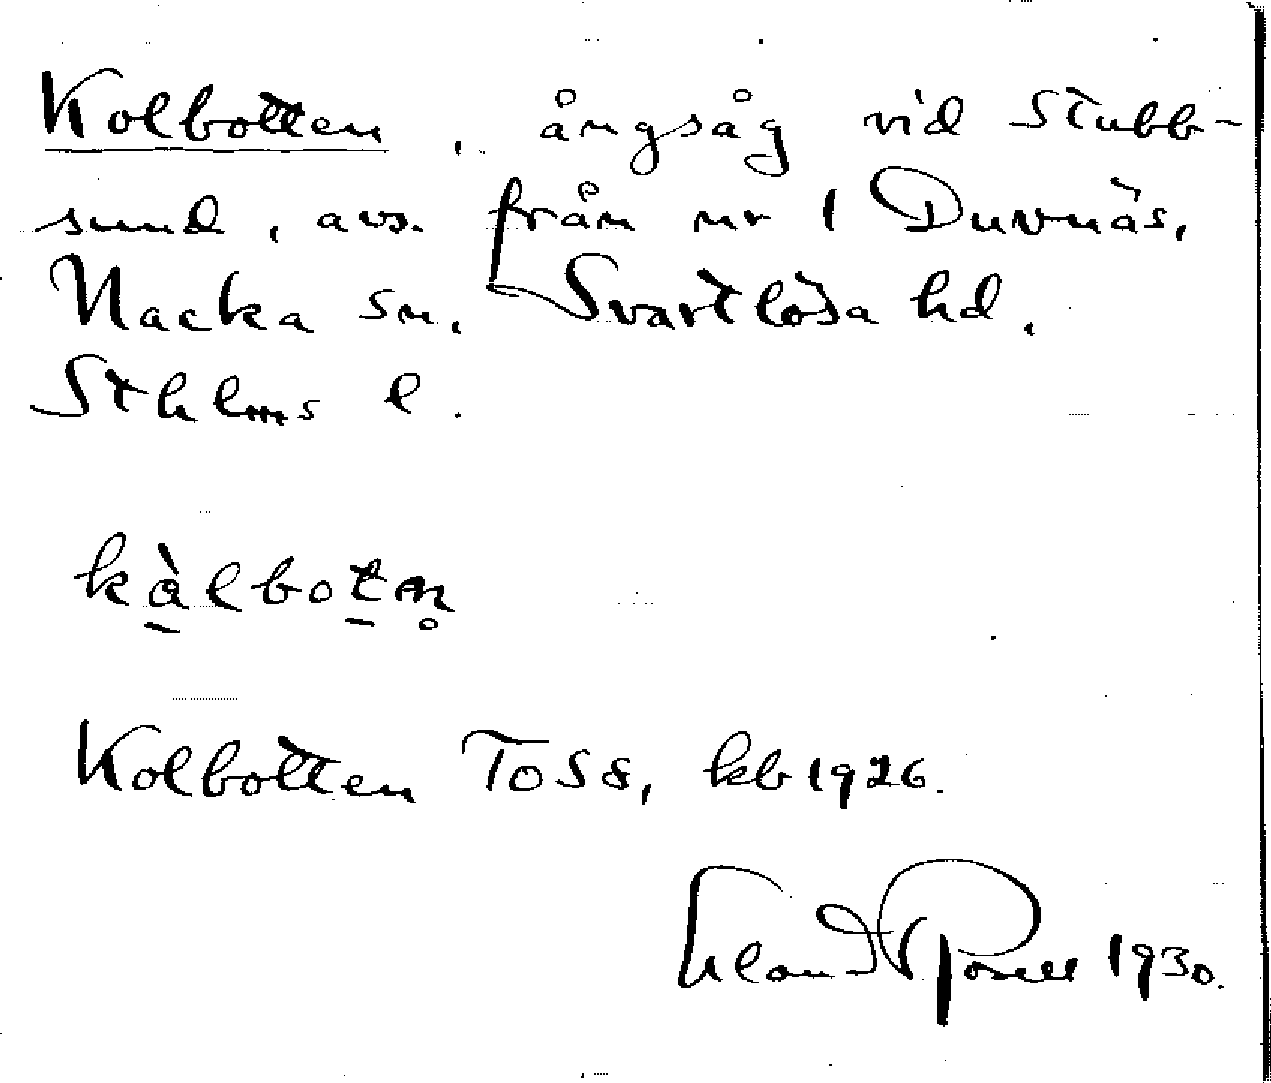 Kolbotten, ångsåg vid Stubb-
sund, avs. från nr 1 Duvnäs,
Nacka sn, Svartlösa hd,
Sthlms l.
kàlbotn̥
Kolbotten ToSs, kb 1926.
1930.